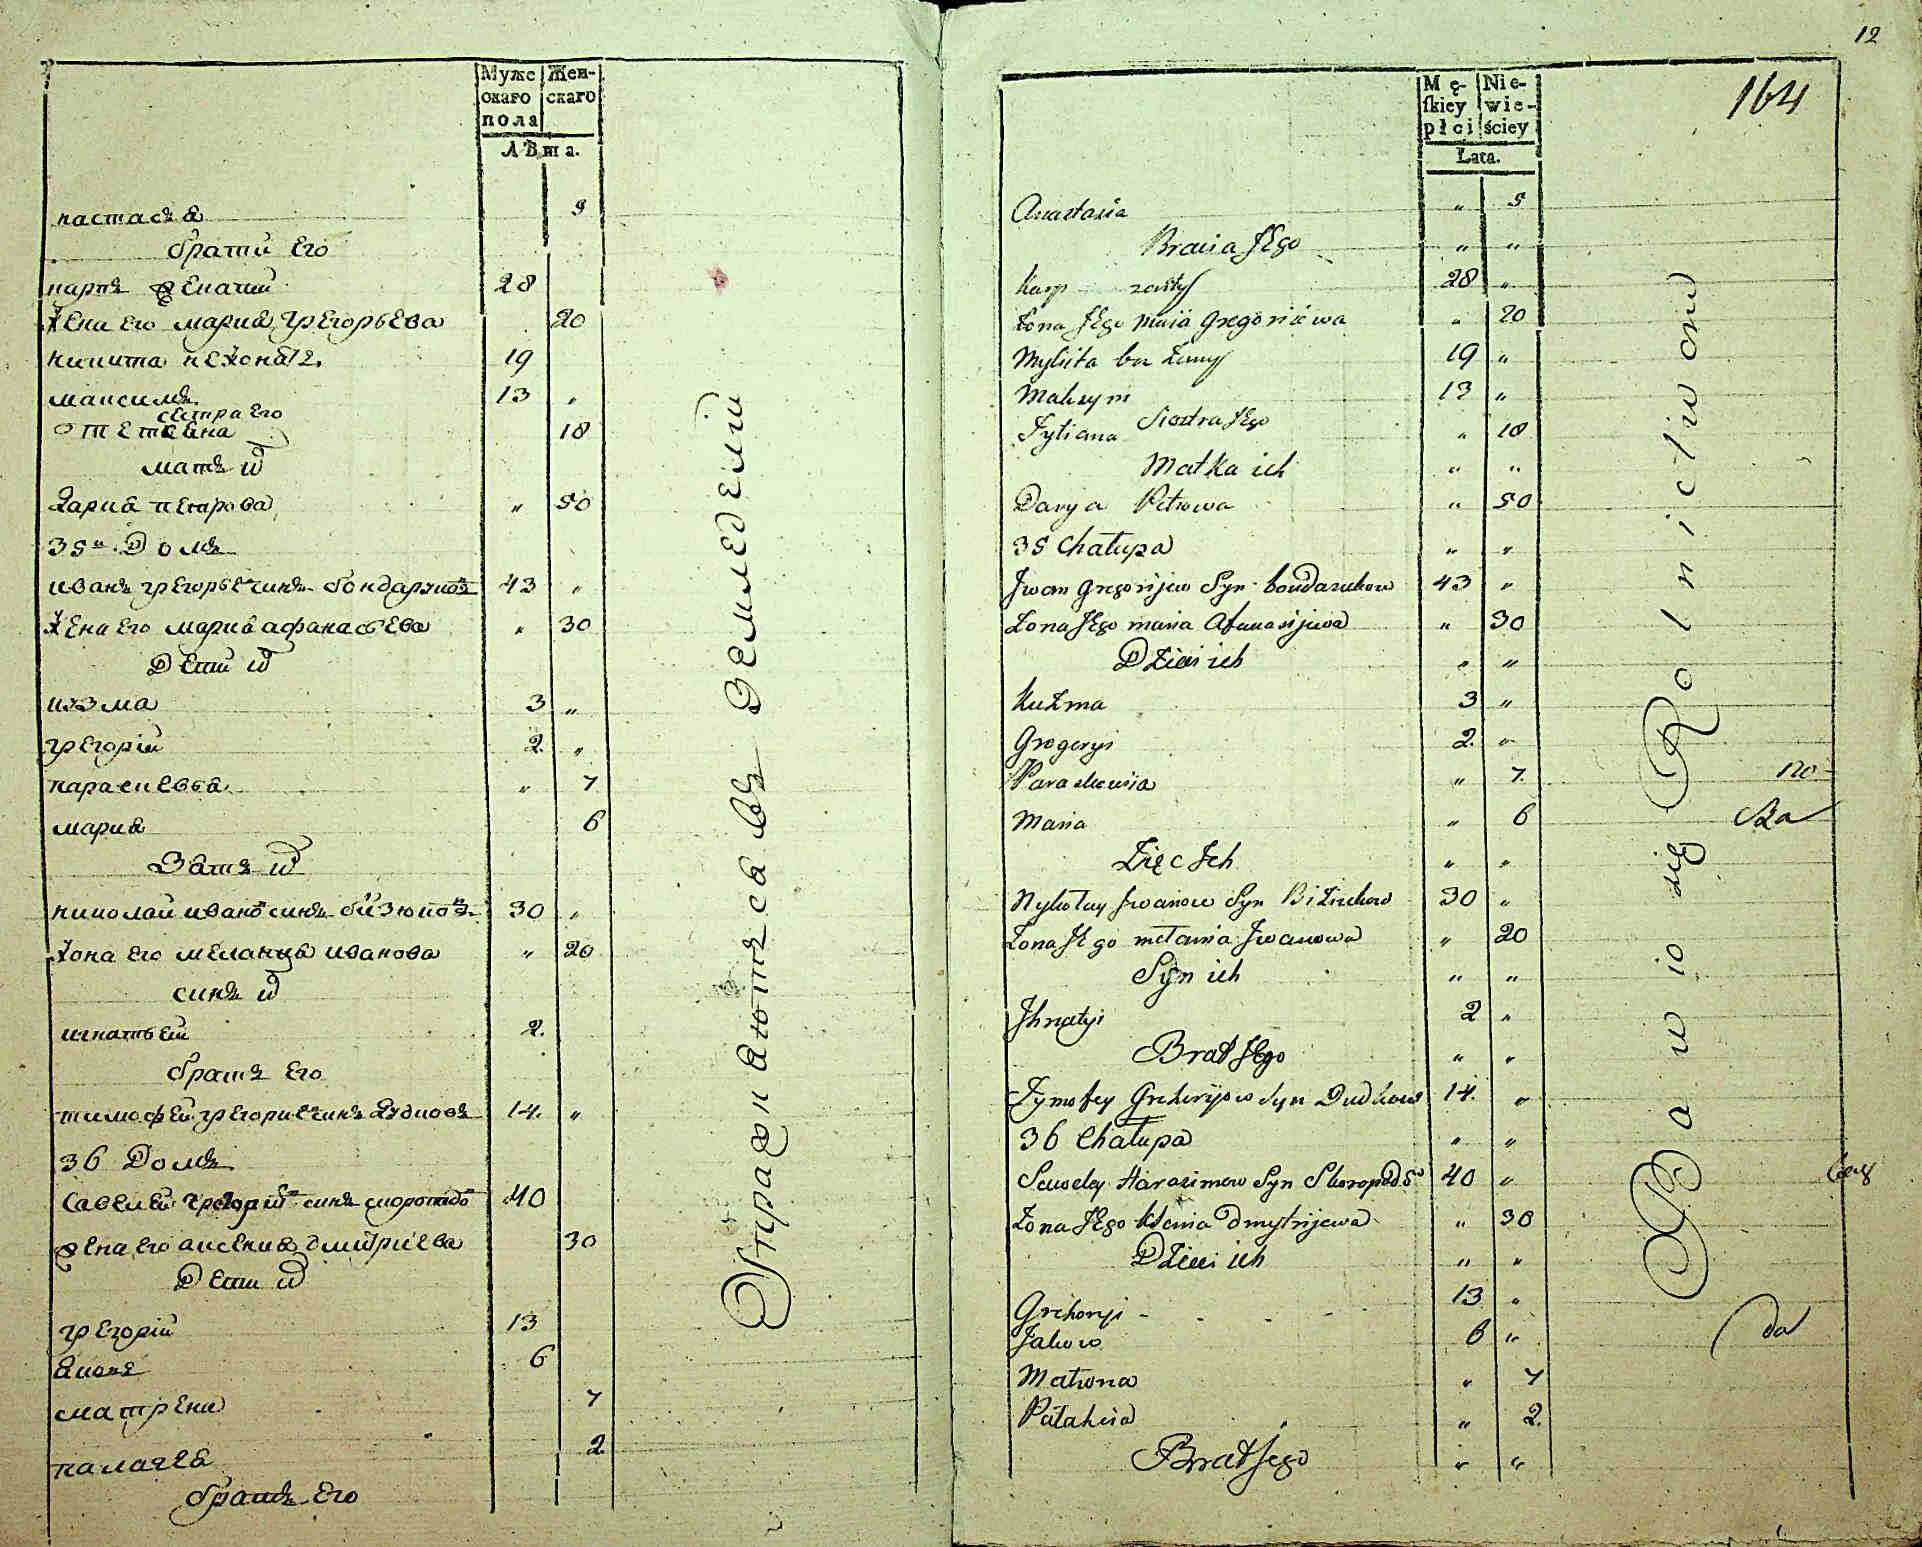 Муже Жен-
скаго скаго
пола
Лѣта.
настасѧ 9
братѧ Его
карпъ женатый 28
жена Его мариѧ григорьева 20
никита нежонатъ 19
максимъ 13 "
сестра Его
тетѧна 18
мать их
дариѧ петрова " 50
35й Домъ
иванъ григорьевъ синъ бондарчковъ 43 "
жена Его мариѧ афанасьева " 30
Дети их
кузма 3 "
григорій 2 "
параскевѧ " 7
мариѧ 6
Зѧть их
николай ивановъ синъ бизюковъ 30 "
жона Его меланиѧ иванова " 20
синъ их
игнатьей 2.
братъ Его
тимофей григориевъ синъ дудковъ 14. "
36 Домъ
савелий синъ 40
жена Его ксениѧ дмитриева 30
Дети их
григорій 13
ѧковъ 6
матрена 7
палагеѧ 2
братъ Его
Упражнѧютсѧ въ Земледеліи
12
164
Mę- Nie-
skiey wie-
płci ściey
Lata.
Anastasia " 9
Bracia JEgo " "
Karp 28 "
Żona JEgo Maria Gregorijewa " 20
Mykita bez Żony 19 "
Maksym 13 "
Siostra JEgo
Tytiana " 18
Matka ich " "
Darya Petrowa " 50
35 Chałupa " "
Jwan Gregorijew Syn bondarukow 43 "
Żona JEgo maria Afanasijewa " 30
Dzieci ich " "
Kuźma 3 "
Gregoryi 2. "
Paraskewia " 7.
Maria " 6
Zięc Jch " "
Nykołay Jwanow Syn Biziukow 30 "
Żona JEgo mełania Jwanowa " 20
Syn ich " "
Jhnatyi 2 "
Brat JEgo " "
Tymofey Grehorijow Syn Dudkow 14. "
36 Chałupa " "
Saweley Harasimow Syn 40 "
Żona JEgo Ksenia Dmytrijewa " 30
Dzieci ich " "
Grehoryi 13 "
Jakow 6 "
Matrona " 7
Pałahia " 2.
Brat Jego " "
Bawio się Rolnictwom
по
да